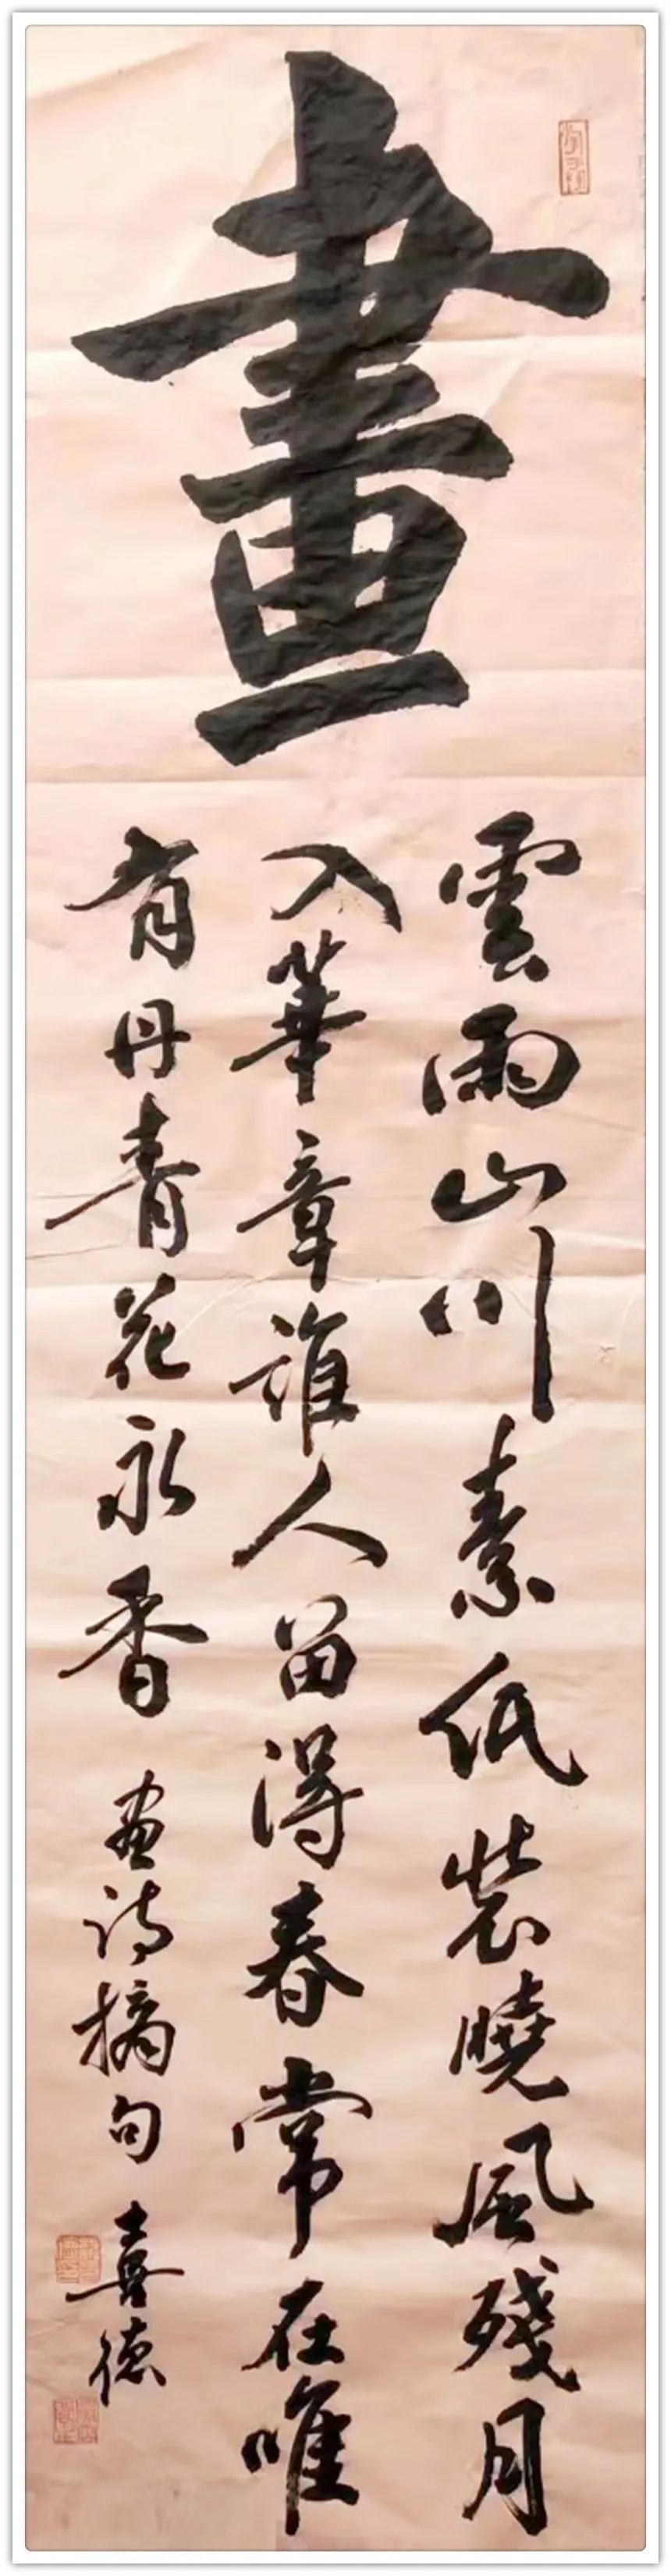 畫
雲雨山川素紙裝曉風殘月
入華章誰人留得春常在唯
有丹青花永香 画诗摘句 喜德